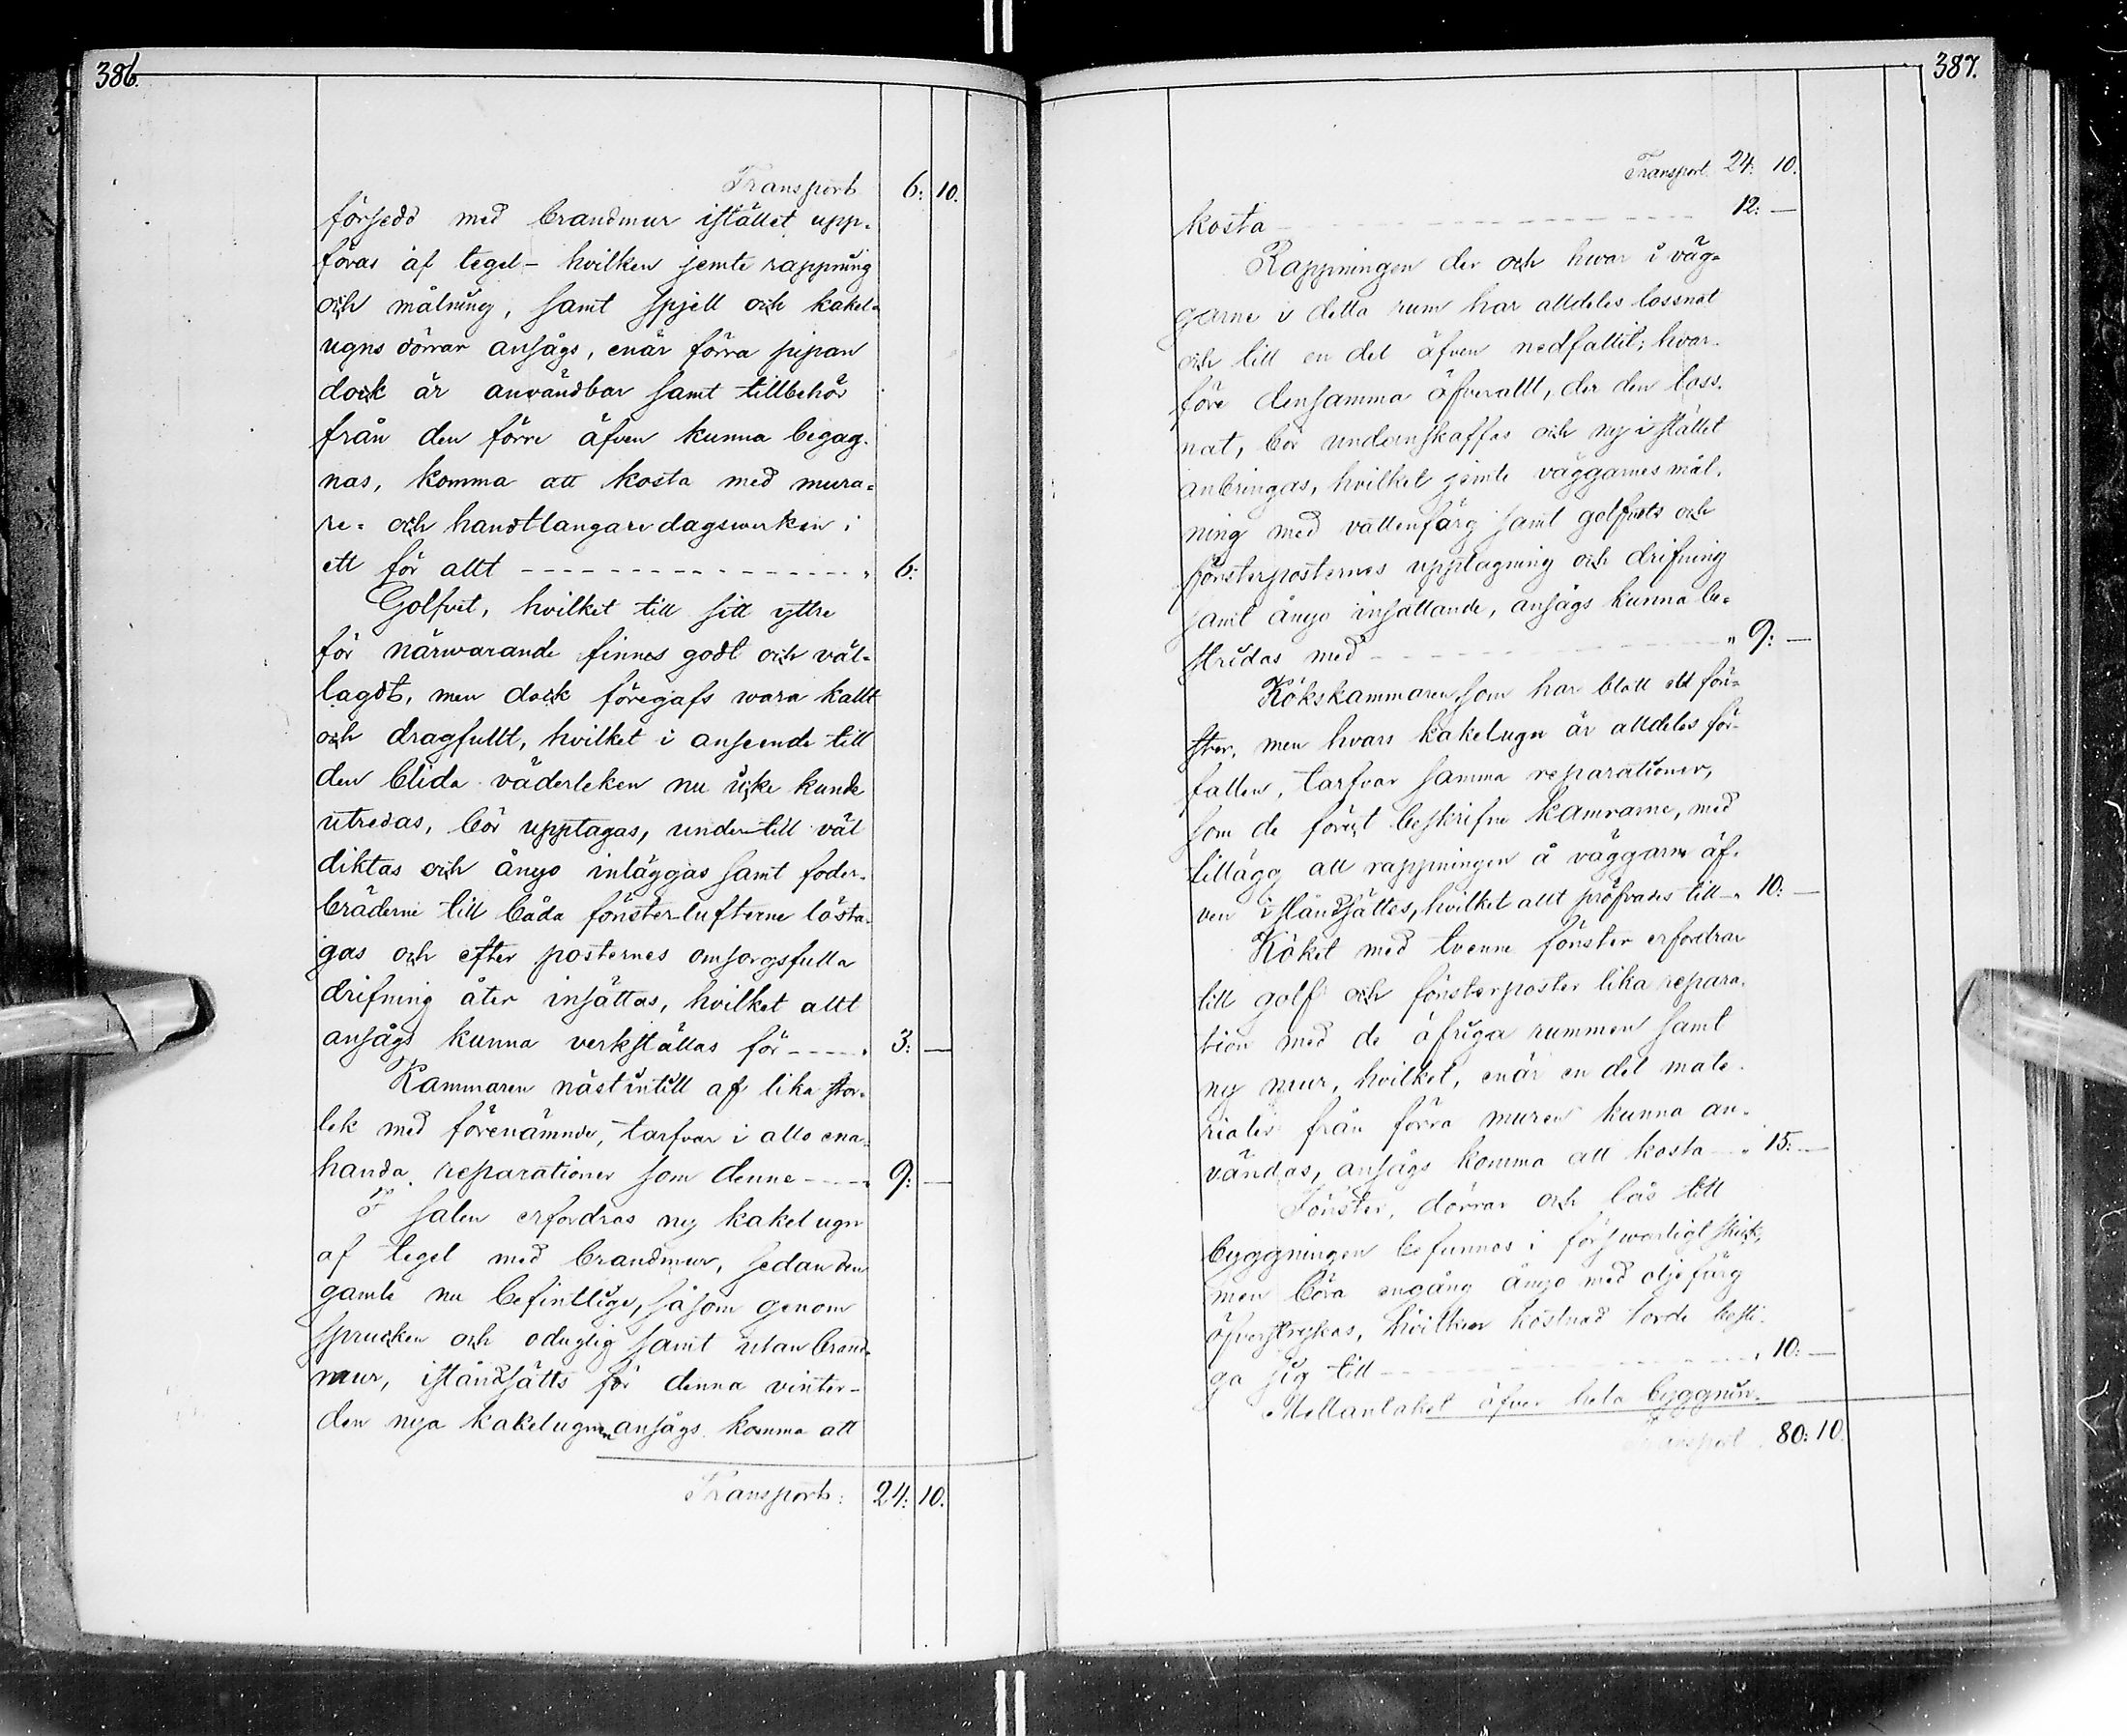 386.
Transport 6: 10.
försedd med brandmur istället upp-
föras af tegel - hvilken jemte rappning
och målning, samt spjell och kakel-
ugns dörrar ansågs, enär förra pipan
dock är användbar samt tillbehör
från den förre äfven kunna begag-
nas, komma att kosta med mura-
re- och handtlangare dagsverken i
ett för allt - - - - - " 6:
Golfvet, hvilket till sitt yttre
för närwarande finnes godt och väl-
lagdt, men dock föregafs wara kallt
och dragfullt, hvilket i anseende till
den blida väderleken nu icke kunde
utredas, bör upptagas, under-till väl
diktas och ånyo inläggas samt foder-
bräderne till båda fönster-lufterne lösta-
gas och efter posternes omsorgsfulla
drifning åter insättas, hvilket allt
ansågs kunna verkställas för - - - " 3: —
Kammaren näst intill af lika stor-
lek med förenämnde, tarfvar i allo ena-
handa reparationer som denne - - - " 9: —
I salen erfordras ny kakelugn
af tegel med brandmur, sedan den
gamle nu befintlige, såsom genom
sprucken och oduglig samt utan brand-
mur, iståndsätts för denna vinter -
den nya kakelugnen ansågs komma att
Transport: 24: 10.
387.
Transport 24: 10.
kosta - - - - - 12: —
Rappningen der och hvar i väg-
garne i detta rum har alldeles lossnat
och till en del äfven nedfallit; hvar-
före densamma öfverallt, der den loss-
nat, bör undanskaffas och ny i stället
anbringas, hvilket jemte väggarnes mål-
ning med vattenfärg samt golfvets och
fönsterposternes upptagning och drifning
samt ånyo insättande, ansågs kunna be-
stridas med - - - - - " 9: —
Kökskammaren, som har blott ett fön-
ster, men hvars kakelugn är alldeles för-
fallen, tarfvar samma reparationer,
som de förest beskrifne kamrarne, med
tillägg att rappningen å väggarne äf-
ven i ståndsättes, hvilket allt pröfvades till - " 10: —
Köket med tvenne fönster erfordrar
till golf och fönsterposter lika repara-
tion med de öfriga rummen samt
ny mur, hvilket, enär en del mate-
rialer från förra muren kunna an-
vändas, ansågs komma att kosta - " 15: —
Fönster, dörrar och lås till
byggningen befunnos i försvarligt skick,
men böra engång ånyo med oljefärg
öfverstrykas, hvilken kostnad torde besti-
ga sig till - - - - - " 10: —
Mellantaket öfver hela byggnin-
Transport 80: 10.